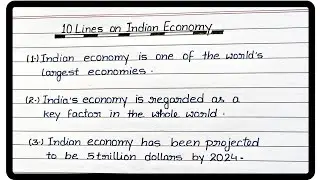 10 Lines on Indian Economy
(1.) Indian economy is one of the world's
largest economies.
(2.) India's economy is regarded as a
key factor in the whole world.
(3.) Indian economy has been projected
to be 5 trillion dollars by 2024.